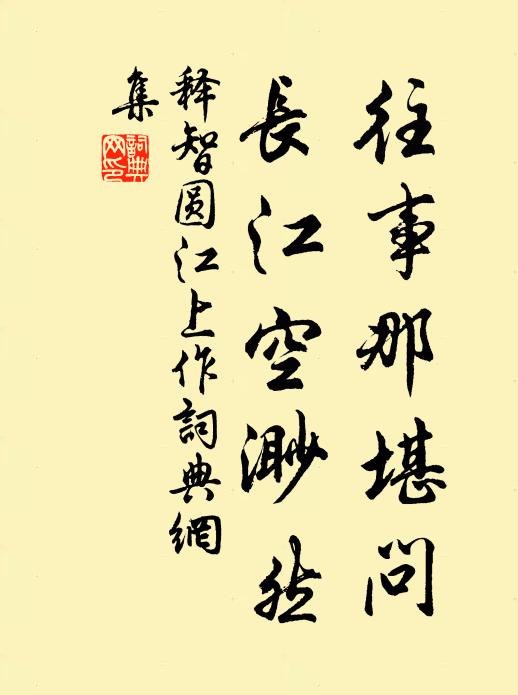 往事那堪问
長江空渺然
释智圆江上作詞典網
集
詞典
网印